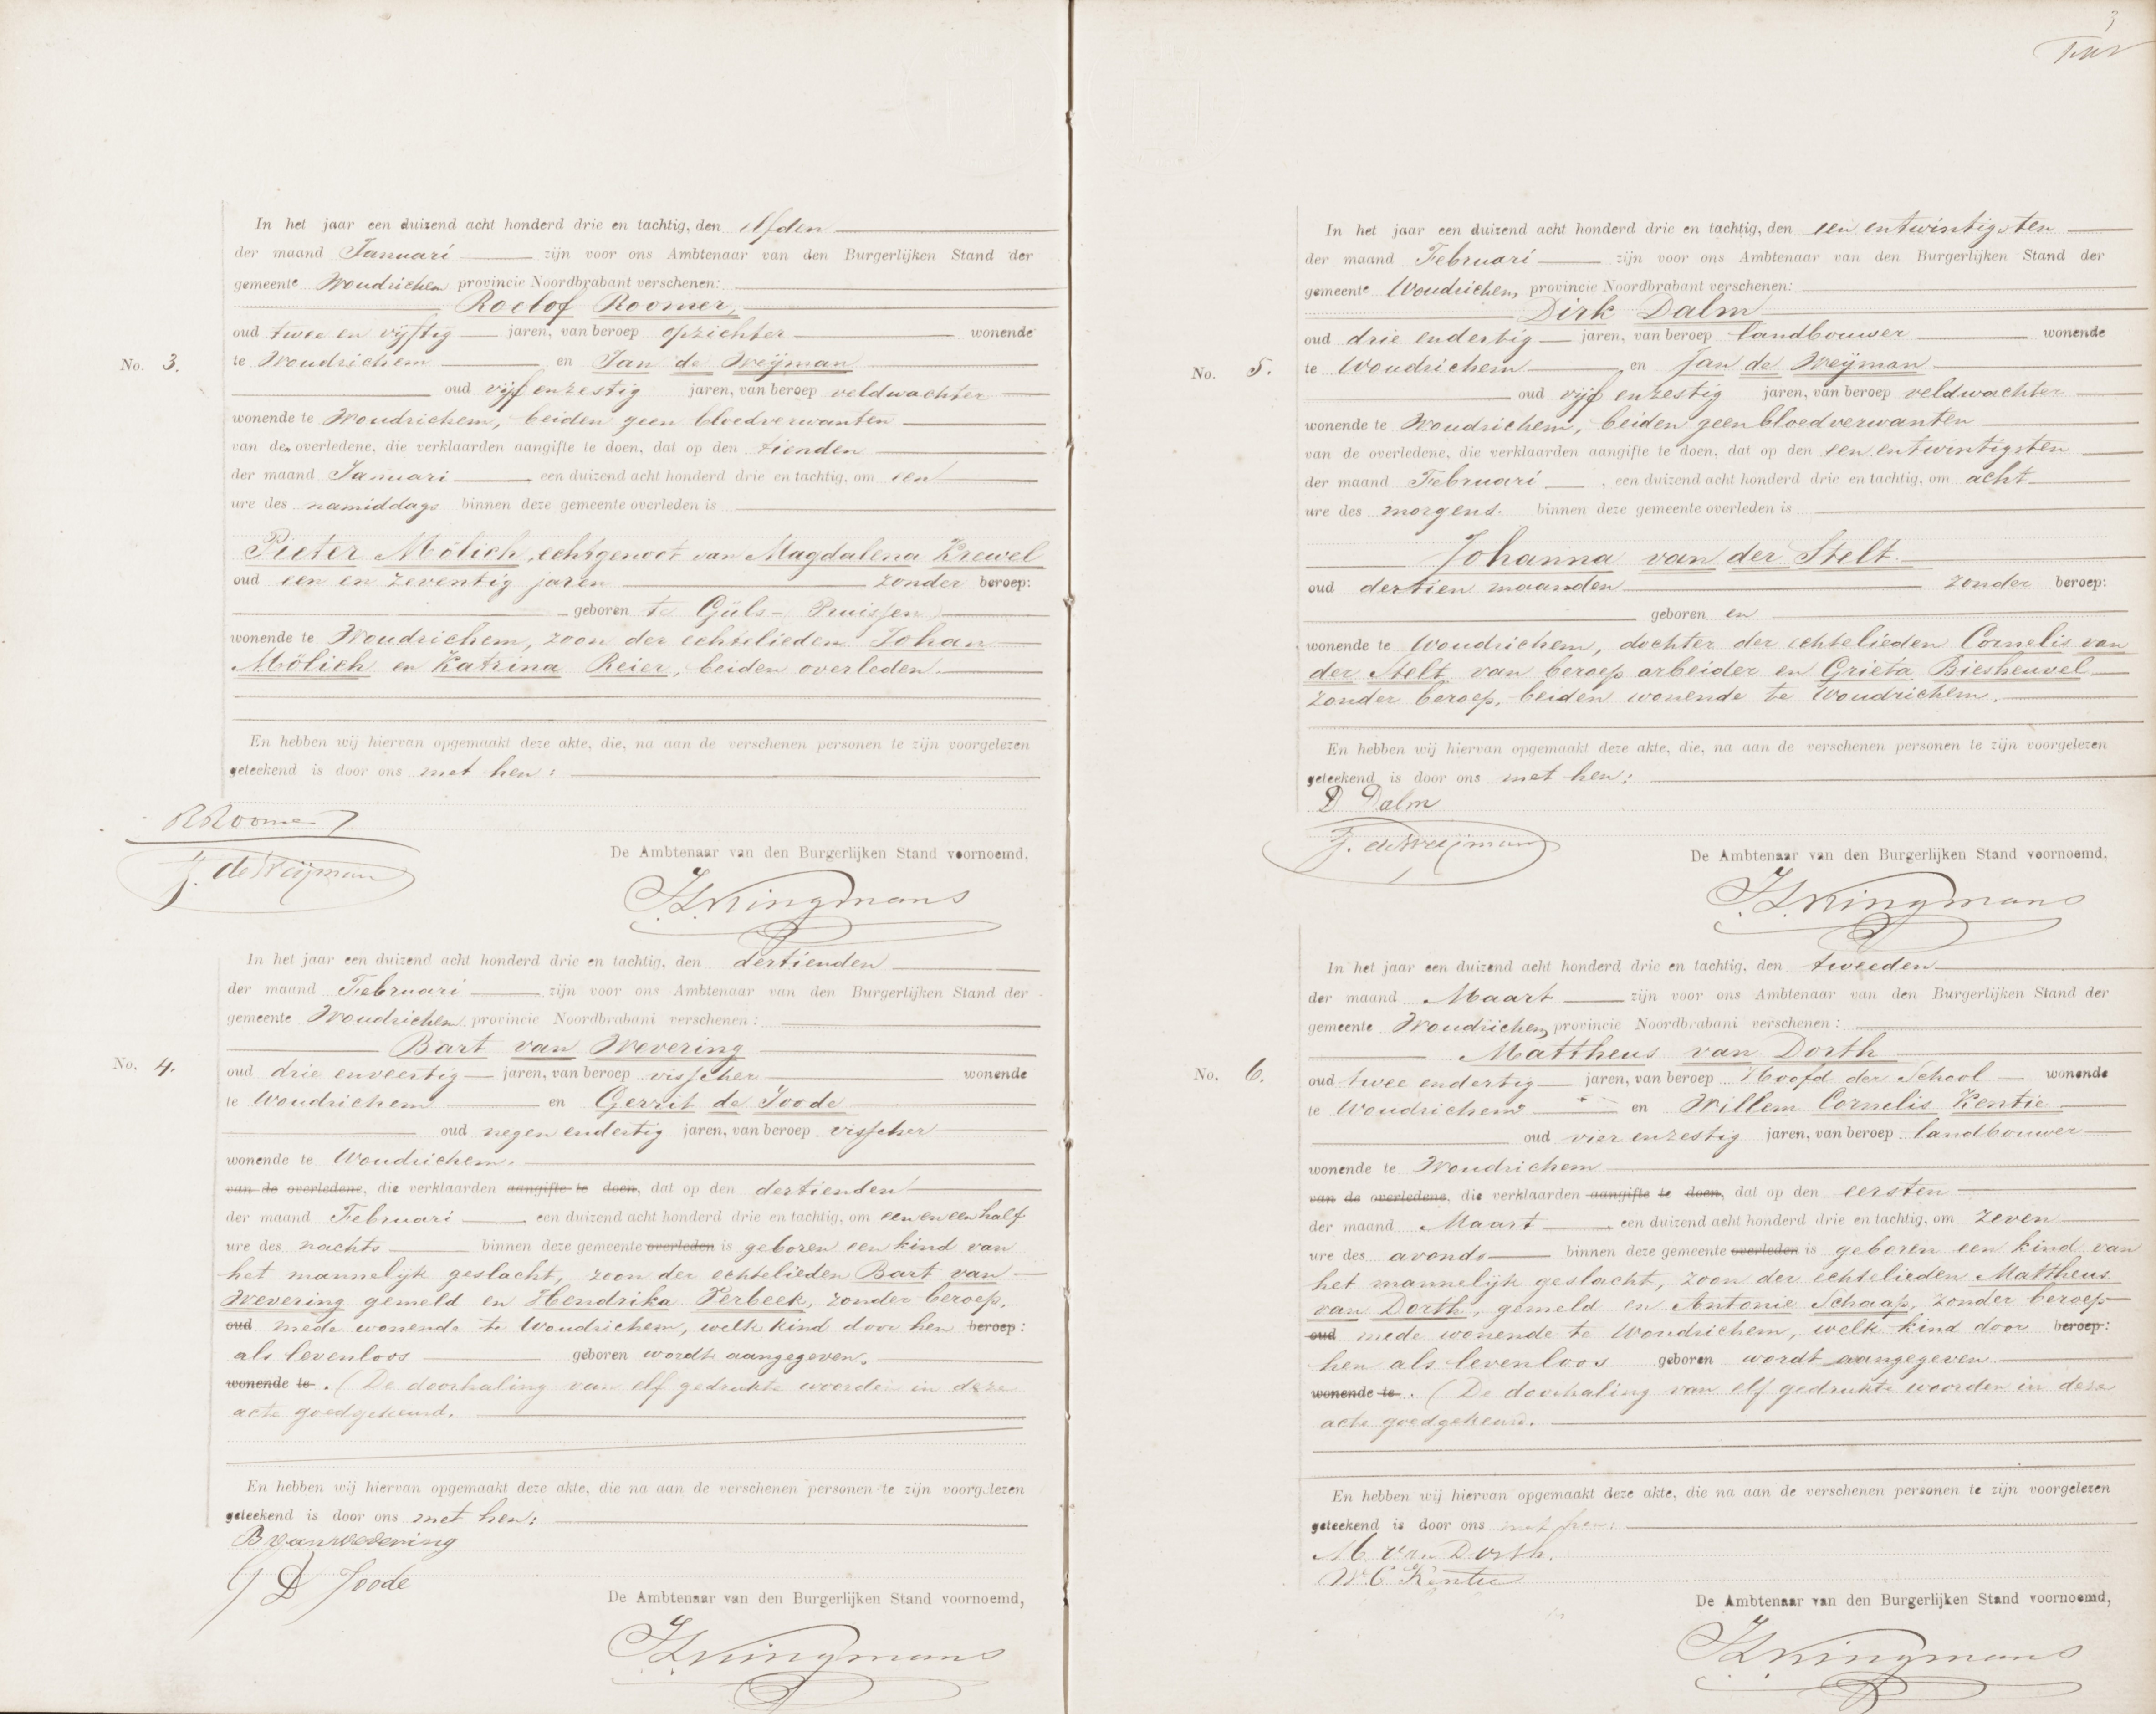 In het jaar een duizend acht honderd drie en tachtig, den elfden
der maand Januari zijn voor ons Ambtenaar van den Burgerlijken Stand der
gemeente Woudrichem provincie Noordbrabant verschenen:
Roelof Roomer,
oud twee en vijftig jaren, van beroep opzichter wonende
No. 3. te Woudrichem en Jan de Weijman
oud vijf enzestig jaren, van beroep veldwachter
wonende te Woudrichem, beiden geen bloedverwanten
van den overledene, die verklaarden aangifte te doen, dat op den tienden
der maand Januari een duizend acht honderd drie en tachtig, om een
ure des namiddags binnen deze gemeente overleden is
Pieter Mölich, echtgenoot van Magdalena Krewel
oud een en zeventig jaren zonder beroep:
geboren te Güls - (Pruissen)
wonende te Woudrichem, zoon der echtelieden Johan
Mölich en Katrina Reier, beiden overleden.
En hebben wij hiervan opgemaakt deze akte, die, na aan de verschenen personen te zijn voorgelezen
geteekend is door ons met hen:
R Roomer
J. de Weijman
De Ambtenaar van den Burgerlijken Stand voornoemd,
In het jaar een duizend acht honderd drie en tachtig, den dertienden
der maand Februari zijn voor ons Ambtenaar van den Burgerlijken Stand der
gemeente Woudrichem provincie Noordbrabant verschenen:
Bart van Wevering
No. 4. oud drie enveertig jaren, van beroep visscher wonende
te Woudrichem en Gerrit de Joode
oud negen endertig jaren, van beroep visscher
wonende te Woudrichem.
van de overledene, die verklaarden aangifte te doen, dat op den dertienden
der maand Februari een duizend acht honderd drie en tachtig, om een en een half
ure des nachts binnen deze gemeente overleden is geboren een kind van
het mannelijk geslacht, zoon der echtelieden Bart van
Wevering gemeld en Hendrika Verbeek, zonder beroep,
oud mede wonende te Woudrichem, welk kind door hen beroep:
als levenloos geboren wordt aangegeven.
wonende te. (De doorhaling van elf gedrukte woorden in deze
acte goedgekeurd.
En hebben wij hiervan opgemaakt deze akte, die na aan de verschenen personen te zijn voorgelezen
geteekend is door ons met hen:
B van wevering
G D Joode
De Ambtenaar van den Burgerlijken Stand voornoemd,
3
In het jaar een duizend acht honderd drie en tachtig, den een entwintigsten
der maand Februari zijn voor ons Ambtenaar van den Burgerlijken Stand der
gemeente Woudrichem, provincie Noordbrabant verschenen:
Dirk Dalm
oud drie endertig jaren, van beroep landbouwer wonende
No. 5. te Woudrichem en Jan de Weijman
oud vijf enzestig jaren, van beroep veldwachter
wonende te Woudrichem, beiden geen bloedverwanten
van de overledene, die verklaarden aangifte te doen, dat op den een entwintigsten
der maand Februari, een duizend acht honderd drie en tachtig, om acht
ure des morgens. binnen deze gemeente overleden is
Johanna van der Stelt.
oud dertien maanden zonder beroep:
geboren en
wonende te Woudrichem, dochter der echtelieden Cornelis van
der Stelt van beroep arbeider en Grieta Biesheuvel
zonder beroep, beiden wonende te Woudrichem.
En hebben wij hiervan opgemaakt deze akte, die, na aan de verschenen personen te zijn voorgelezen
geteekend is door ons met hen:
D Dalm
J. de Weijman
De Ambtenaar van den Burgerlijken Stand voornoemd,
In het jaar een duizend acht honderd drie en tachtig, den tweeden
der maand Maart zijn voor ons Ambtenaar van den Burgerlijken Stand der
gemeente Woudrichem, provincie Noordbrabant verschenen:
Mattheus van Dorth
No. 6. oud twee endertig jaren, van beroep Hoofd der School wonende
te Woudrichem en Willem Cornelis Kentie
oud vier enzestig jaren, van beroep landbouwer
wonende te Woudrichem
van de overledene, die verklaarden aangifte te doen, dat op den eersten
der maand Maart, een duizend acht honderd drie en tachtig, om zeven
ure des avonds binnen deze gemeente overleden is geboren een kind van
het mannelijk geslacht, zoon der echtelieden Mattheus
van Dorth, gemeld en Antonie Schaap, zonder beroep
oud mede wonende te Woudrichem, welk kind door beroep:
hen als levenloos geboren wordt aangegeven
wonende te. (De doorhaling van elf gedrukte woorden in deze
acte goedgekeurd.
En hebben wij hiervan opgemaakt deze akte, die na aan de verschenen personen te zijn voorgelezen
geteekend is door ons met hen:
M. van Dorth.
W. C Kentie
De Ambtenaar van den Burgerlijken Stand voornoemd,